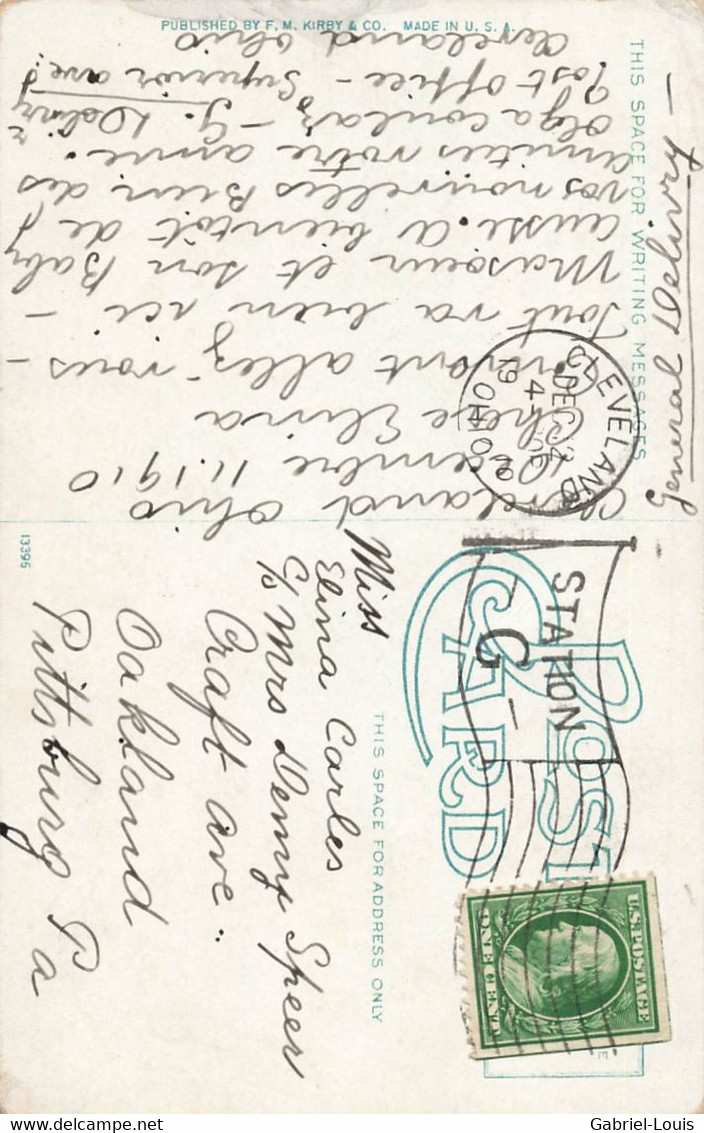 PUBLISHED BY F. M. KIRBY & CO. MADE IN U. S. A.
THIS SPACE FOR WRITING MESSAGES
Cleveland Ohio
Décembre 11. 1910
Chere Elina
allez-vous -
Tout va bien ici Baby -
Masoeur et son
aussi. a bientôt de
vos nouvelles Bien des
amities votre amie.
Olga
Post Office - Superior ave
Cleveland Ohio
13395
POST CARD
THIS SPACE FOR ADDRESS ONLY
Miss
Elina Carles
c/o Mrs Denny Speer
Craft ave.
Oakland
Pittsburg Pa
CLEVELAND
DEC 12
4 -
1910
OHIO
STATION
C -
U.S. POSTAGE
ONE CENT
Gabriel-Louis